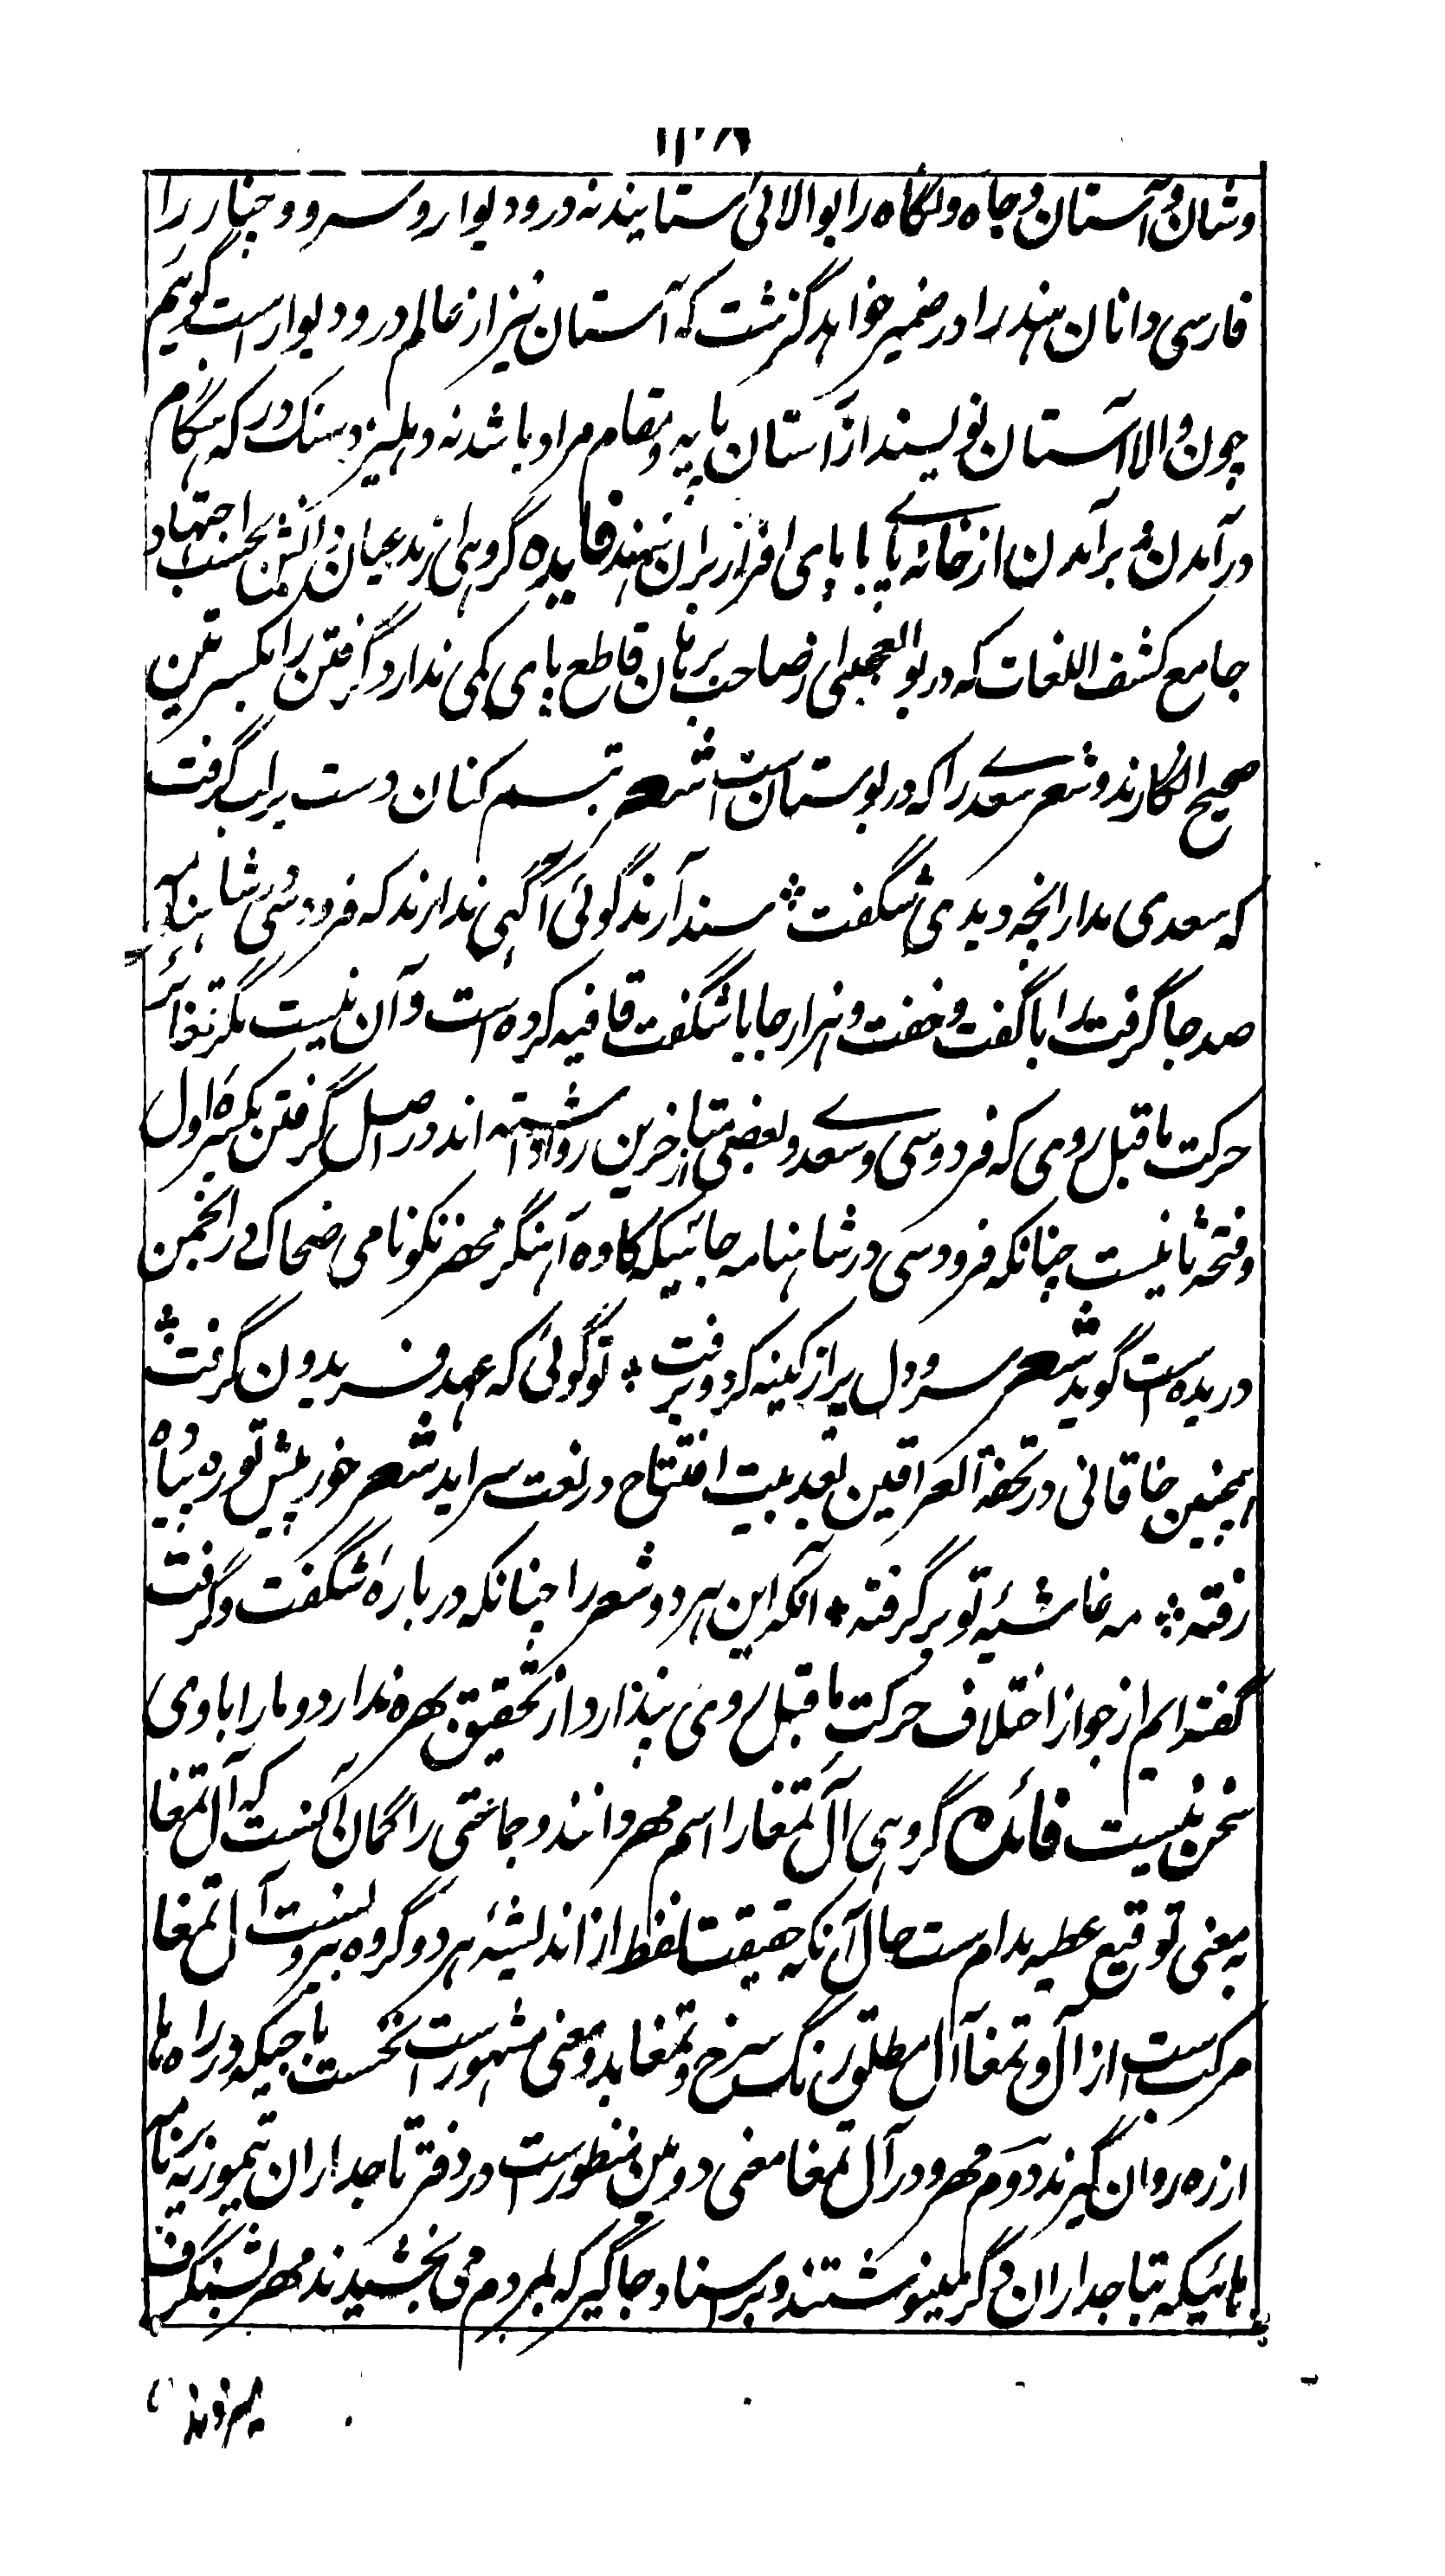 وشان و آستان و جاه و نگاه را بوالائی ستایند نه در و دیوار و سرو و چنار را
فارسی دانان هند را در ضمیر خواهد گزشت که آستان نیز از عالم در و دیوار است گوئیم
چون والا آستان نویسند از آستان پایه و مقام مراد باشد نه دهلیز و سنگ در که هنگام
درآمدن و برآمدن از خانه پا یا پای افزار بران نهند فایده گروهی از مدعیان دانش بحسب اجتهاد
جامع کشف اللغات که در بوالعجبی از صاحب برهان قاطع پای کمی ندارد گرفتن را بکسرتین
صحیح انگارند و شعر سعدی را که در بوستان ست شعر تبسم کنان دست بر لب گرفت
که سعدی مدار انچه دیدی شگفت ؞ سند آرند گوئی آگهی ندارند که فردوسی در شاهنامه
صد جا گرفت را با گفت و خفت و هزار جا با شگفت قافیه کرده است و آن نیست مگر تغائر
حرکت ماقبل روی که فردوسی و سعدی و بعضی متاخرین روا داشته اند در اصل گرفتن بکسرهٔ اول
و فتحه ثانیست چنانکه فردوسی در شاهنامه جائیکه کاوه آهنگر محضر نکونامی ضحاک در انجمن
دریده ست گوید شعر سرو دل پر از کینه کرد و برفت ؞ تو گوئی که عهد فریدون گرفت ؞
همچنین خاقانی در تحفة العراقین بعد بیت افتتاح در نعت سراید شعر خور پیش تو ره پیاده
رفته ؞ مه غاشیهٔ تو برگرفته ؞ آنکه این هر دو شعر را چنانکه دربارهٔ شگفت و گرفت
گفته ایم از جواز اختلاف حرکت ماقبل روی پندارد از تحقیق بهره ندارد و ما را با وی
سخن نیست فائده گروهی آل تمغا را اسم مهر دانند و جماعتی را گمان آنکست که آل تمغا
به معنی توقیع عطیه مدام ست حال آنکه حقیقت لفظ از اندیشهٔ هر دو گروه بیرونست آل تمغا
مرکب ست از آل و تمغا آل مطلق رنگ سرخ و تمغا بدو معنی مشهور ست نخست باجیکه در راه ها
از ره روان گیرند دوم مهر و در آل تمغا معنی دومین منظورست در دفتر تاجداران تیموریه بر نامه
هائیکه بتاجداران دگر مینوشتند و بر اسناد جاگیر که بمردم می بخشیدند مهر بشنگرف
میزدند